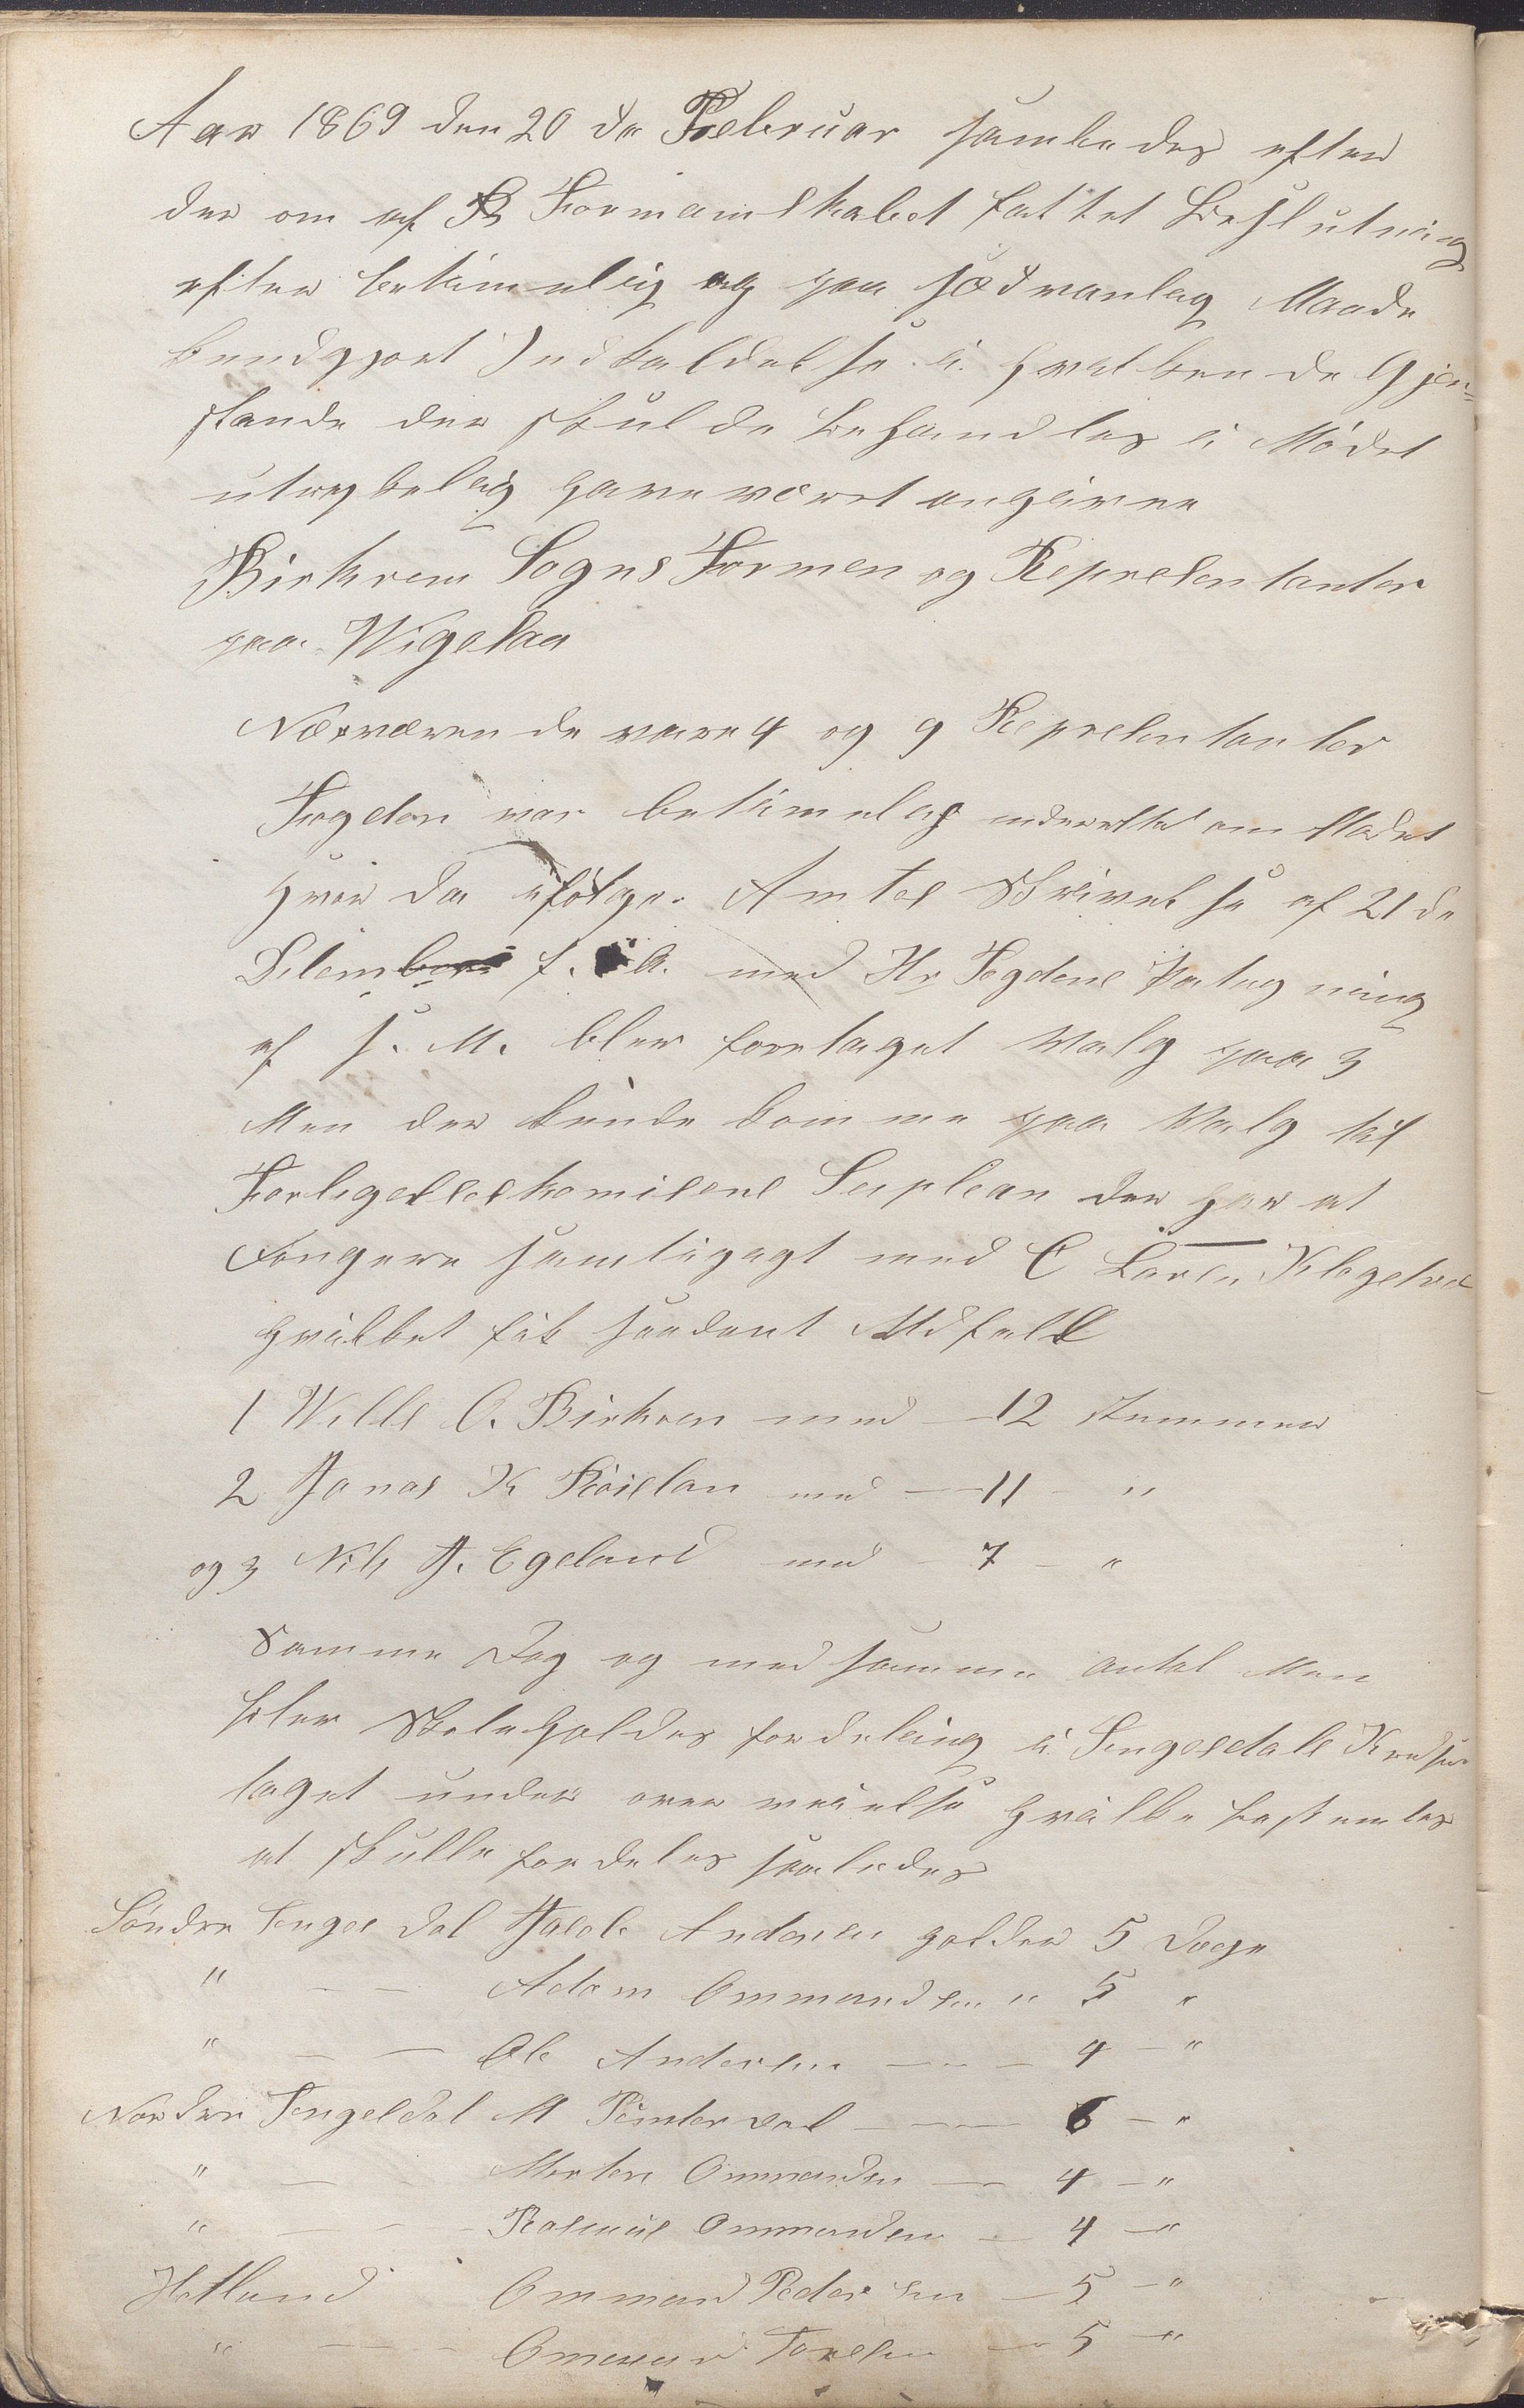 Aar 1869 den 20 de Februar sambedes efter
der om af Formandskabet fattet Beslutning
efter betimelig og paa sædvanlig Maade
kundgjort Indkaldelse i hvilken de Gjen-
stande der skulde behandles i Mødet
utrykkelig have været angivne
Birkrem Sogns Formen og Repræsentanter
paa Vigelaa
Nærværende vare 4 og 9 Representanter
Fogden var betimelig underettet om Mødet
hvor da ifølge Amtes Skrivelse af 21 de
Desember f. A. med Hr Fogdens Paategning
af s. M. blev foretaget Valg paa 3
Men der kunde komme paa Valg til
Forligelseskomisens Suplean der har at
Fungere samtigegt med C Larsen
hvilket fik saadant Udfald
1 Will O. Birkrem med 12 stemmer
2 Jonas K Røislan med 11 "
og 3 Nils J. Egeland med 7 "
Samme Dag og med samme antal Men
blev Skoleholdes fordeling i Tengesdals Kreds
taget under over veielse hvilke bestemtes
at skulle fordeles saaledes
Søndre Tengesdal Jacob Andersen holder 5 Dage
" Adam Ommundsen " 5 "
" Ole Andersen 4 "
Nordre Tengesdal M 6 "
" Morten Ommundsen 4 "
" Rasmus Ommundsen 4 "
Hetland Ommund Pedersen 5 "
" Ommund Toresen 5 "